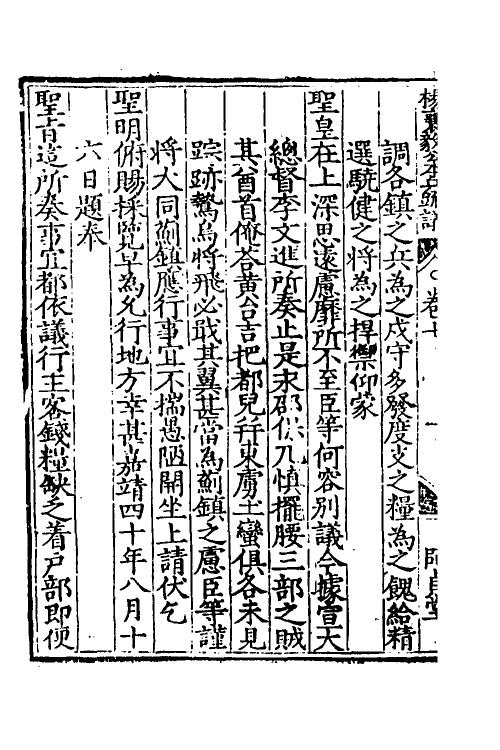 楊襄毅公本兵疏議 卷七
調各鎮之兵為之戍守多發度支之糧為之餽給精
選驍健之將為之捍禦仰蒙
聖皇在上深思遠慮靡所不至臣等何容別議今據宣大
總督李文進所奏止是永邵卜 慎擺腰三部之賊
其酋首俺荅黃台吉把都兒幷東虜土蠻俱各未見
踪跡鷙鳥將飛必戢其翼甚當為薊鎮之慮臣等謹
將大同薊鎮應行事宜不揣愚陋開坐上請伏乞
聖明俯賜採覽早為允行地方幸甚嘉靖四十年八月十
六日題奉
聖旨這所奏事宜都依議行主客錢糧缺乏着戶部即便